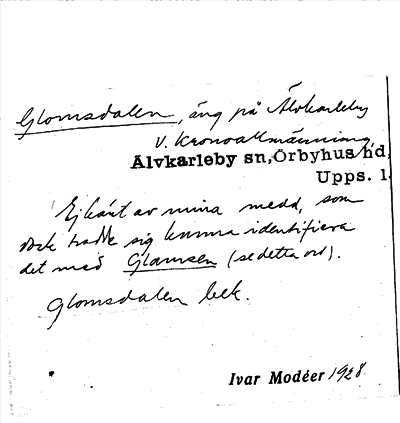 Glomsdalen, äng på Älvkarleby
v. Kronoallmänning,
Älvkarleby sn, Örbyhus hd,
Upps. l.
Ej känt av mina medd, som
dock trodde sig kunna identifiera
det med Glamsen (se detta ord).
Glomsdalen bek.
Ivar Modéer 1928